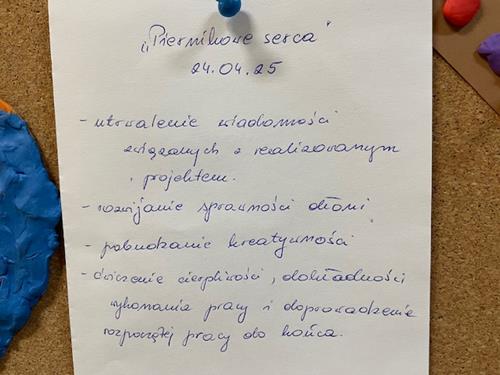 „Piernikowe serca”
24.04.25
- utrwalenie wiadomości
związanych z realizowanym
projektem.
- rozwijanie sprawności dłoni,
- pobudzanie kreatywności
- ćwiczenie cierpliwości, dokładności
wykonania pracy i doprowadzenie
rozpoczętej pracy do końca.